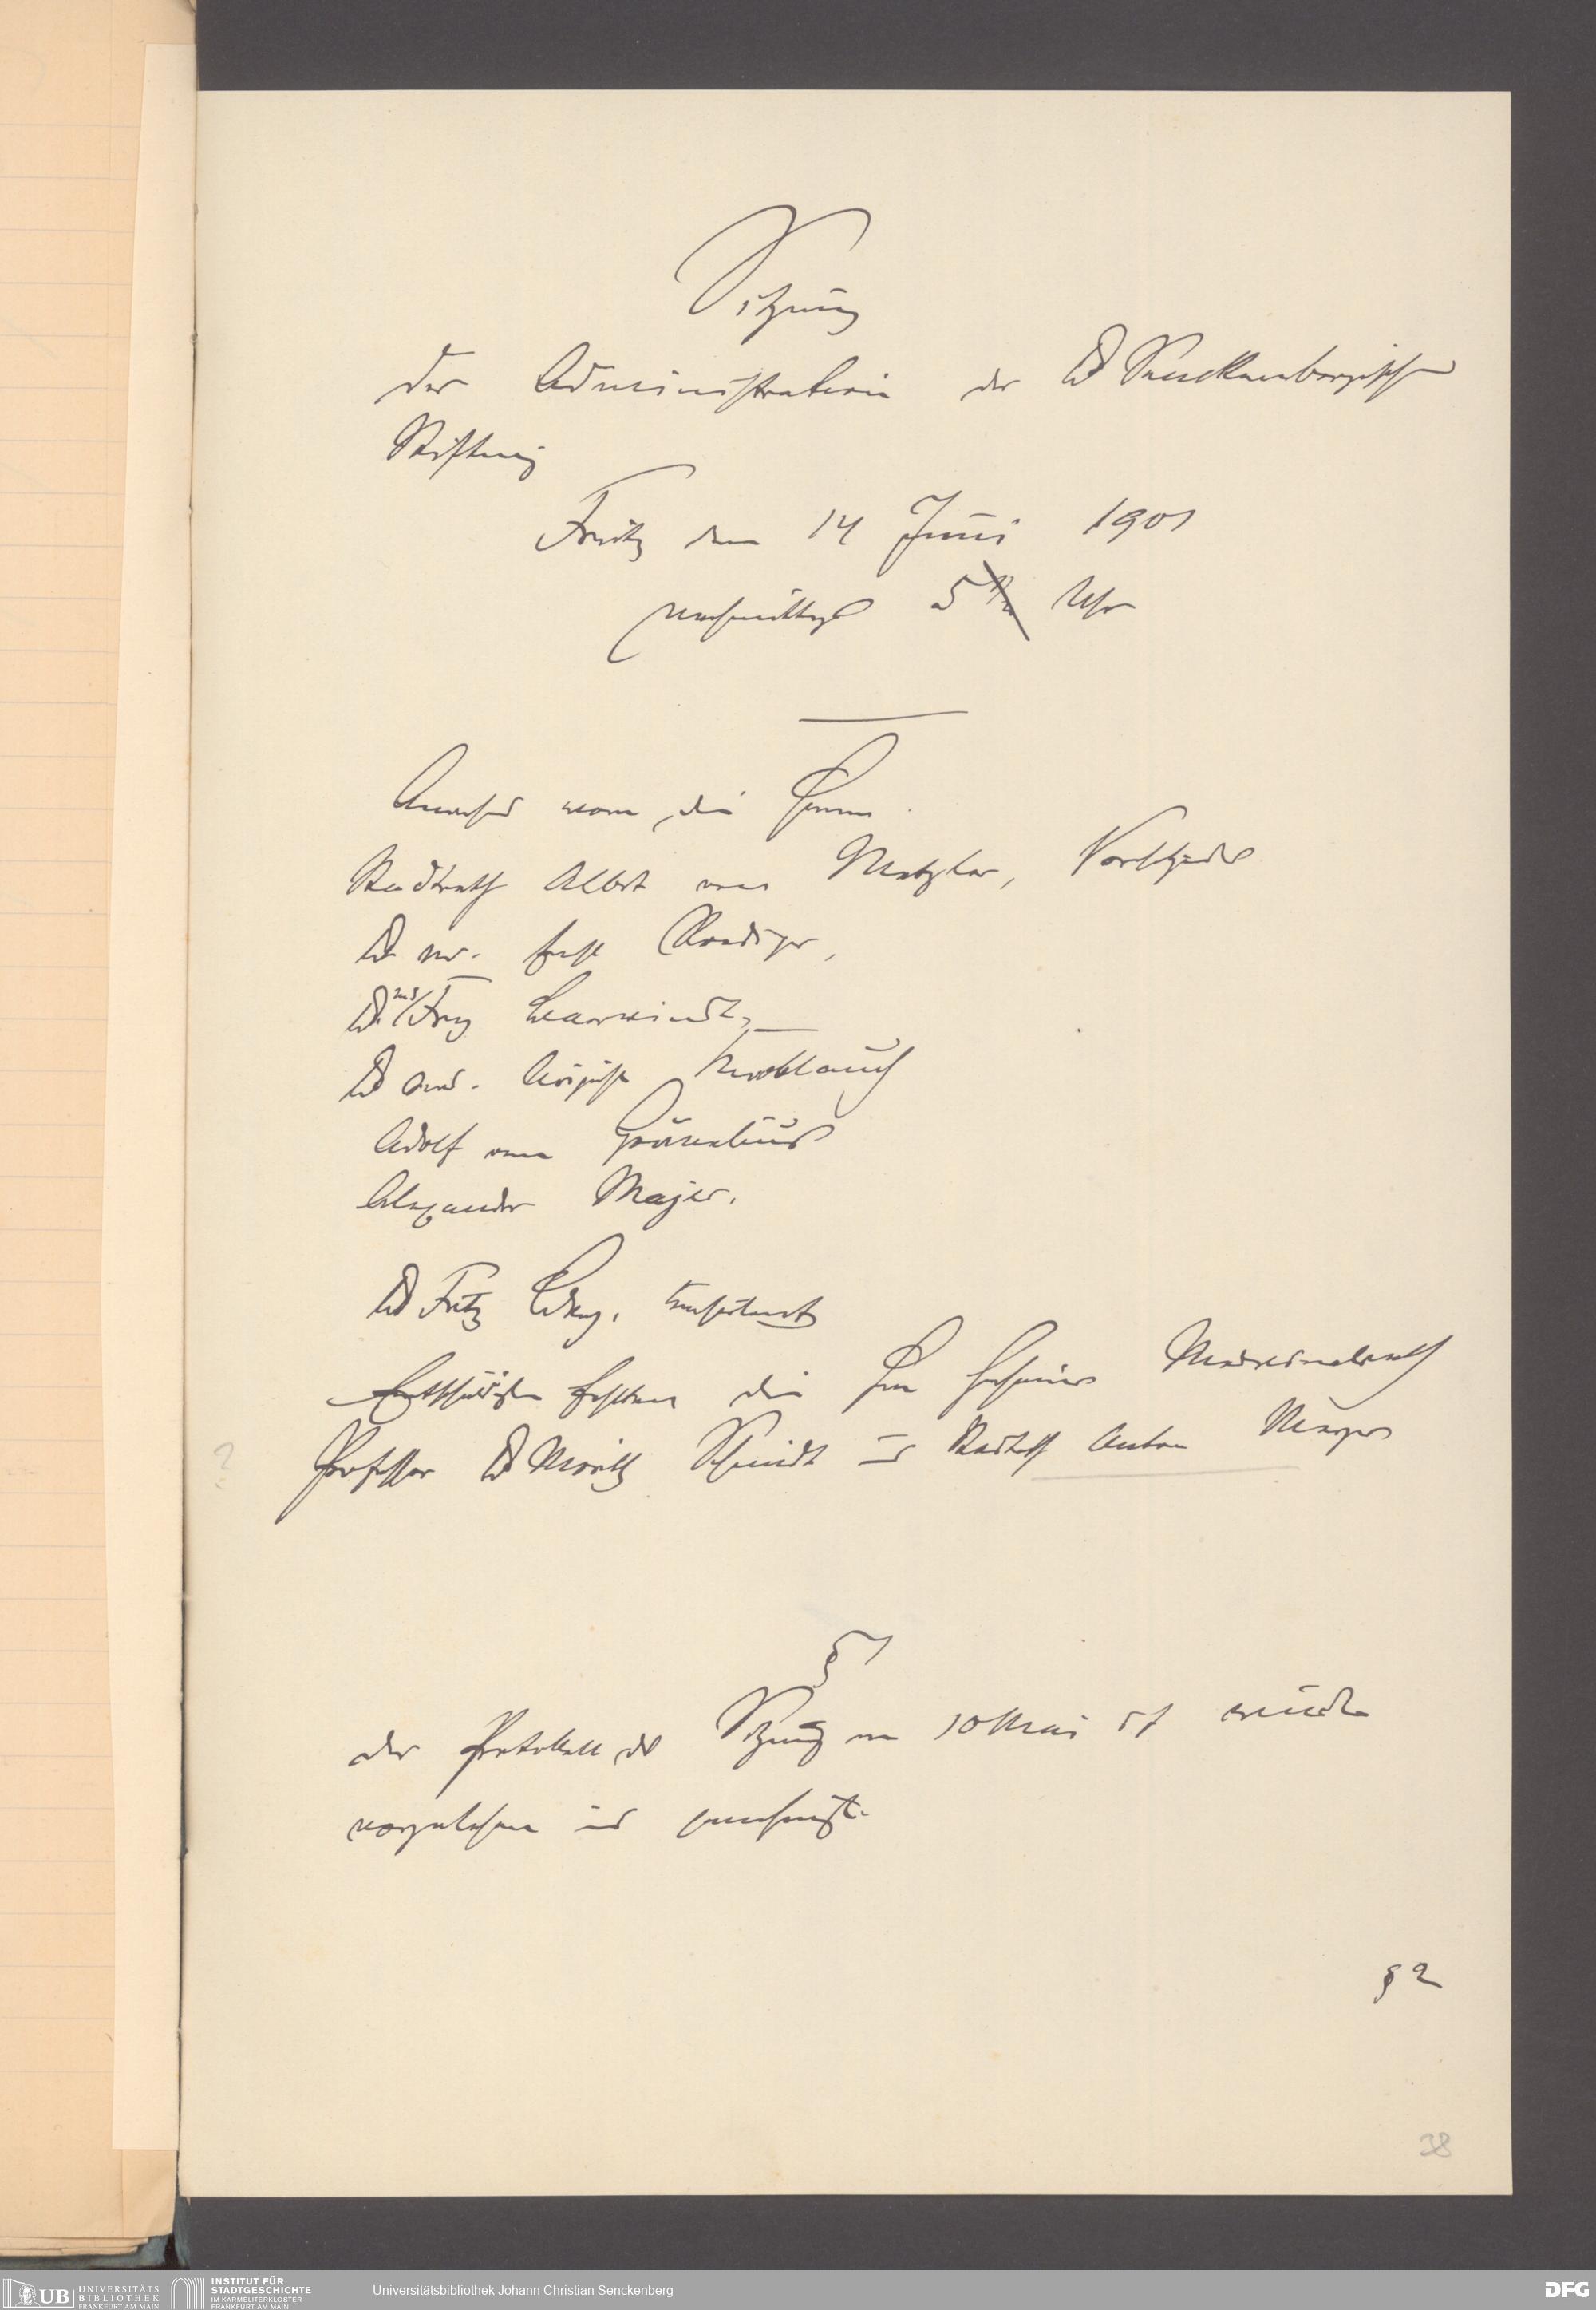 Sitzung
der Administration der Dr Senckenbergischen
Stiftung
Freitag den 14 Juni 1901
nachmittags 5 Uhr
Anwesend waren die Herren
Stadtrath Albert von Metzler, Vorsitzender
Dr Ernst Roediger,
Dr med Franz
Dr med. August Knoblauch
Adolf von Grunelius
Alexander Majer.
Dr Fritz Consulent
Entschuldigt fehlten die Herren Geheimer Medicinalrath
Professor Dr Moritz Schmidt und Stadtrath Anton
?
§ 1
der Protokoll der Sitzung vom 10 Mai wurde
vorgelesen und genehmigt.
§ 2
38
UB UNIVERSITÄTS
BIBLIOTHEK
FRANKFURT AM MAIN
INSTITUT FÜR
STADTGESCHICHTE
IM KARMELITERKLOSTER
FRANKFURT AM MAIN
Universitätsbibliothek Johann Christian Senckenberg
DFG